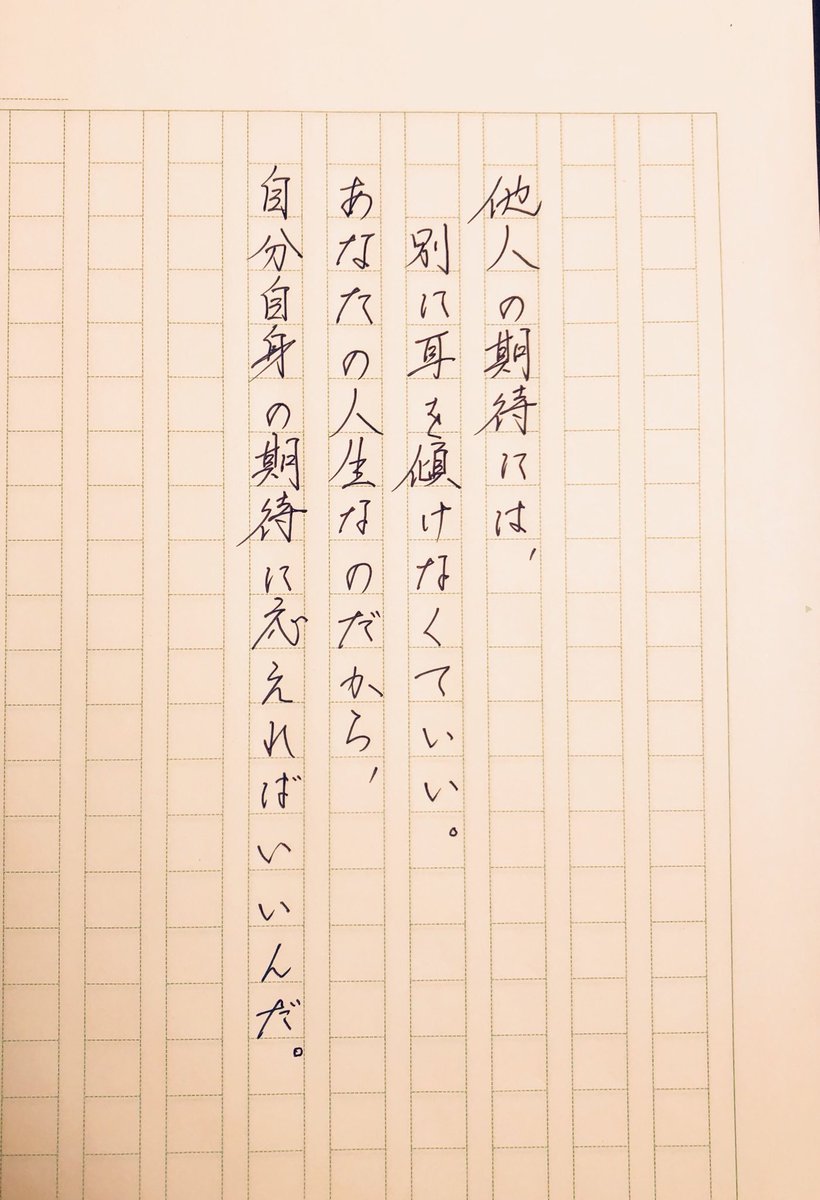 他人の期待には、
別に耳を傾けなくていい。
あなたの人生なのだから、
自分自身の期待に応えればいいんだ。